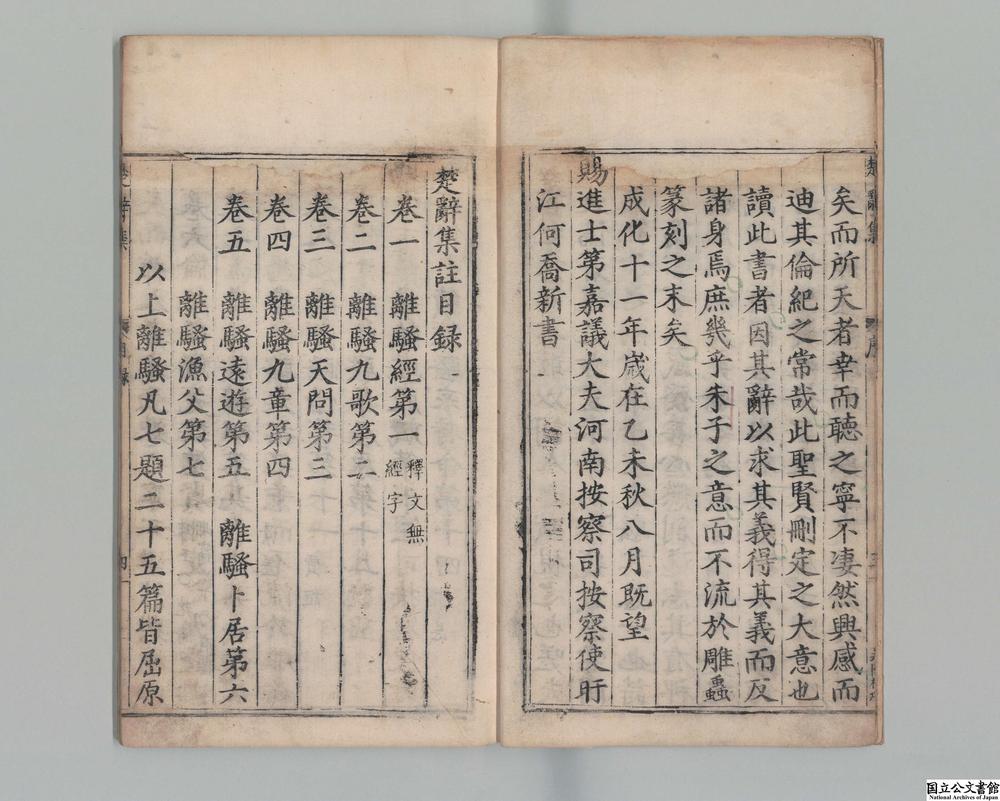 矣而所天者幸而聽之寧不凄然興感而
迪其倫紀之常哉此聖賢刪定之大意也
讀此書者因其辭以求其義得其義而反
諸身焉庶幾乎朱子之意而不流於雕蟲
篆刻之末矣
成化十一年歲在乙未秋八月既望
賜進士第嘉議大夫河南按察司按察使盱
江何喬新書
楚辭集註目録
卷一 離騷經第一 釋文無經字
卷二 離騷九歌第二
卷三 離騷天問第三
卷四 離騷九章第四
卷五 離騷遠遊第五 離騷卜居第六
離騷漁父第七
以上離騷凡七題二十五篇皆屈原
国立公文書館
National Archives of Japan